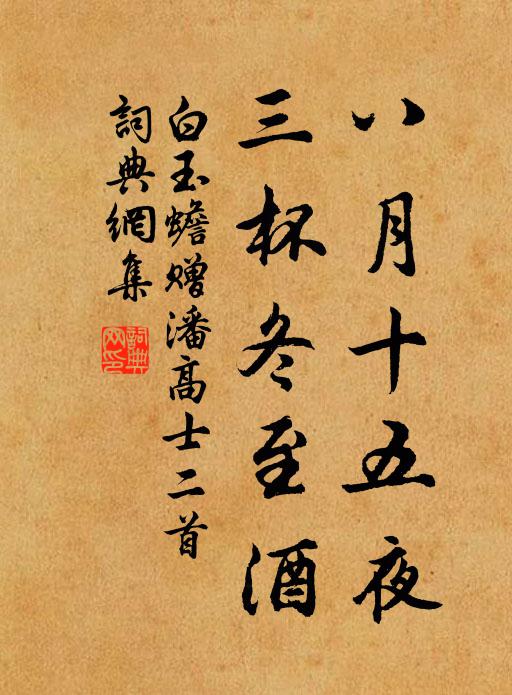 八月十五夜
三杯冬至酒
白玉蟾赠潘高士二首
詞典網集
詞典网印